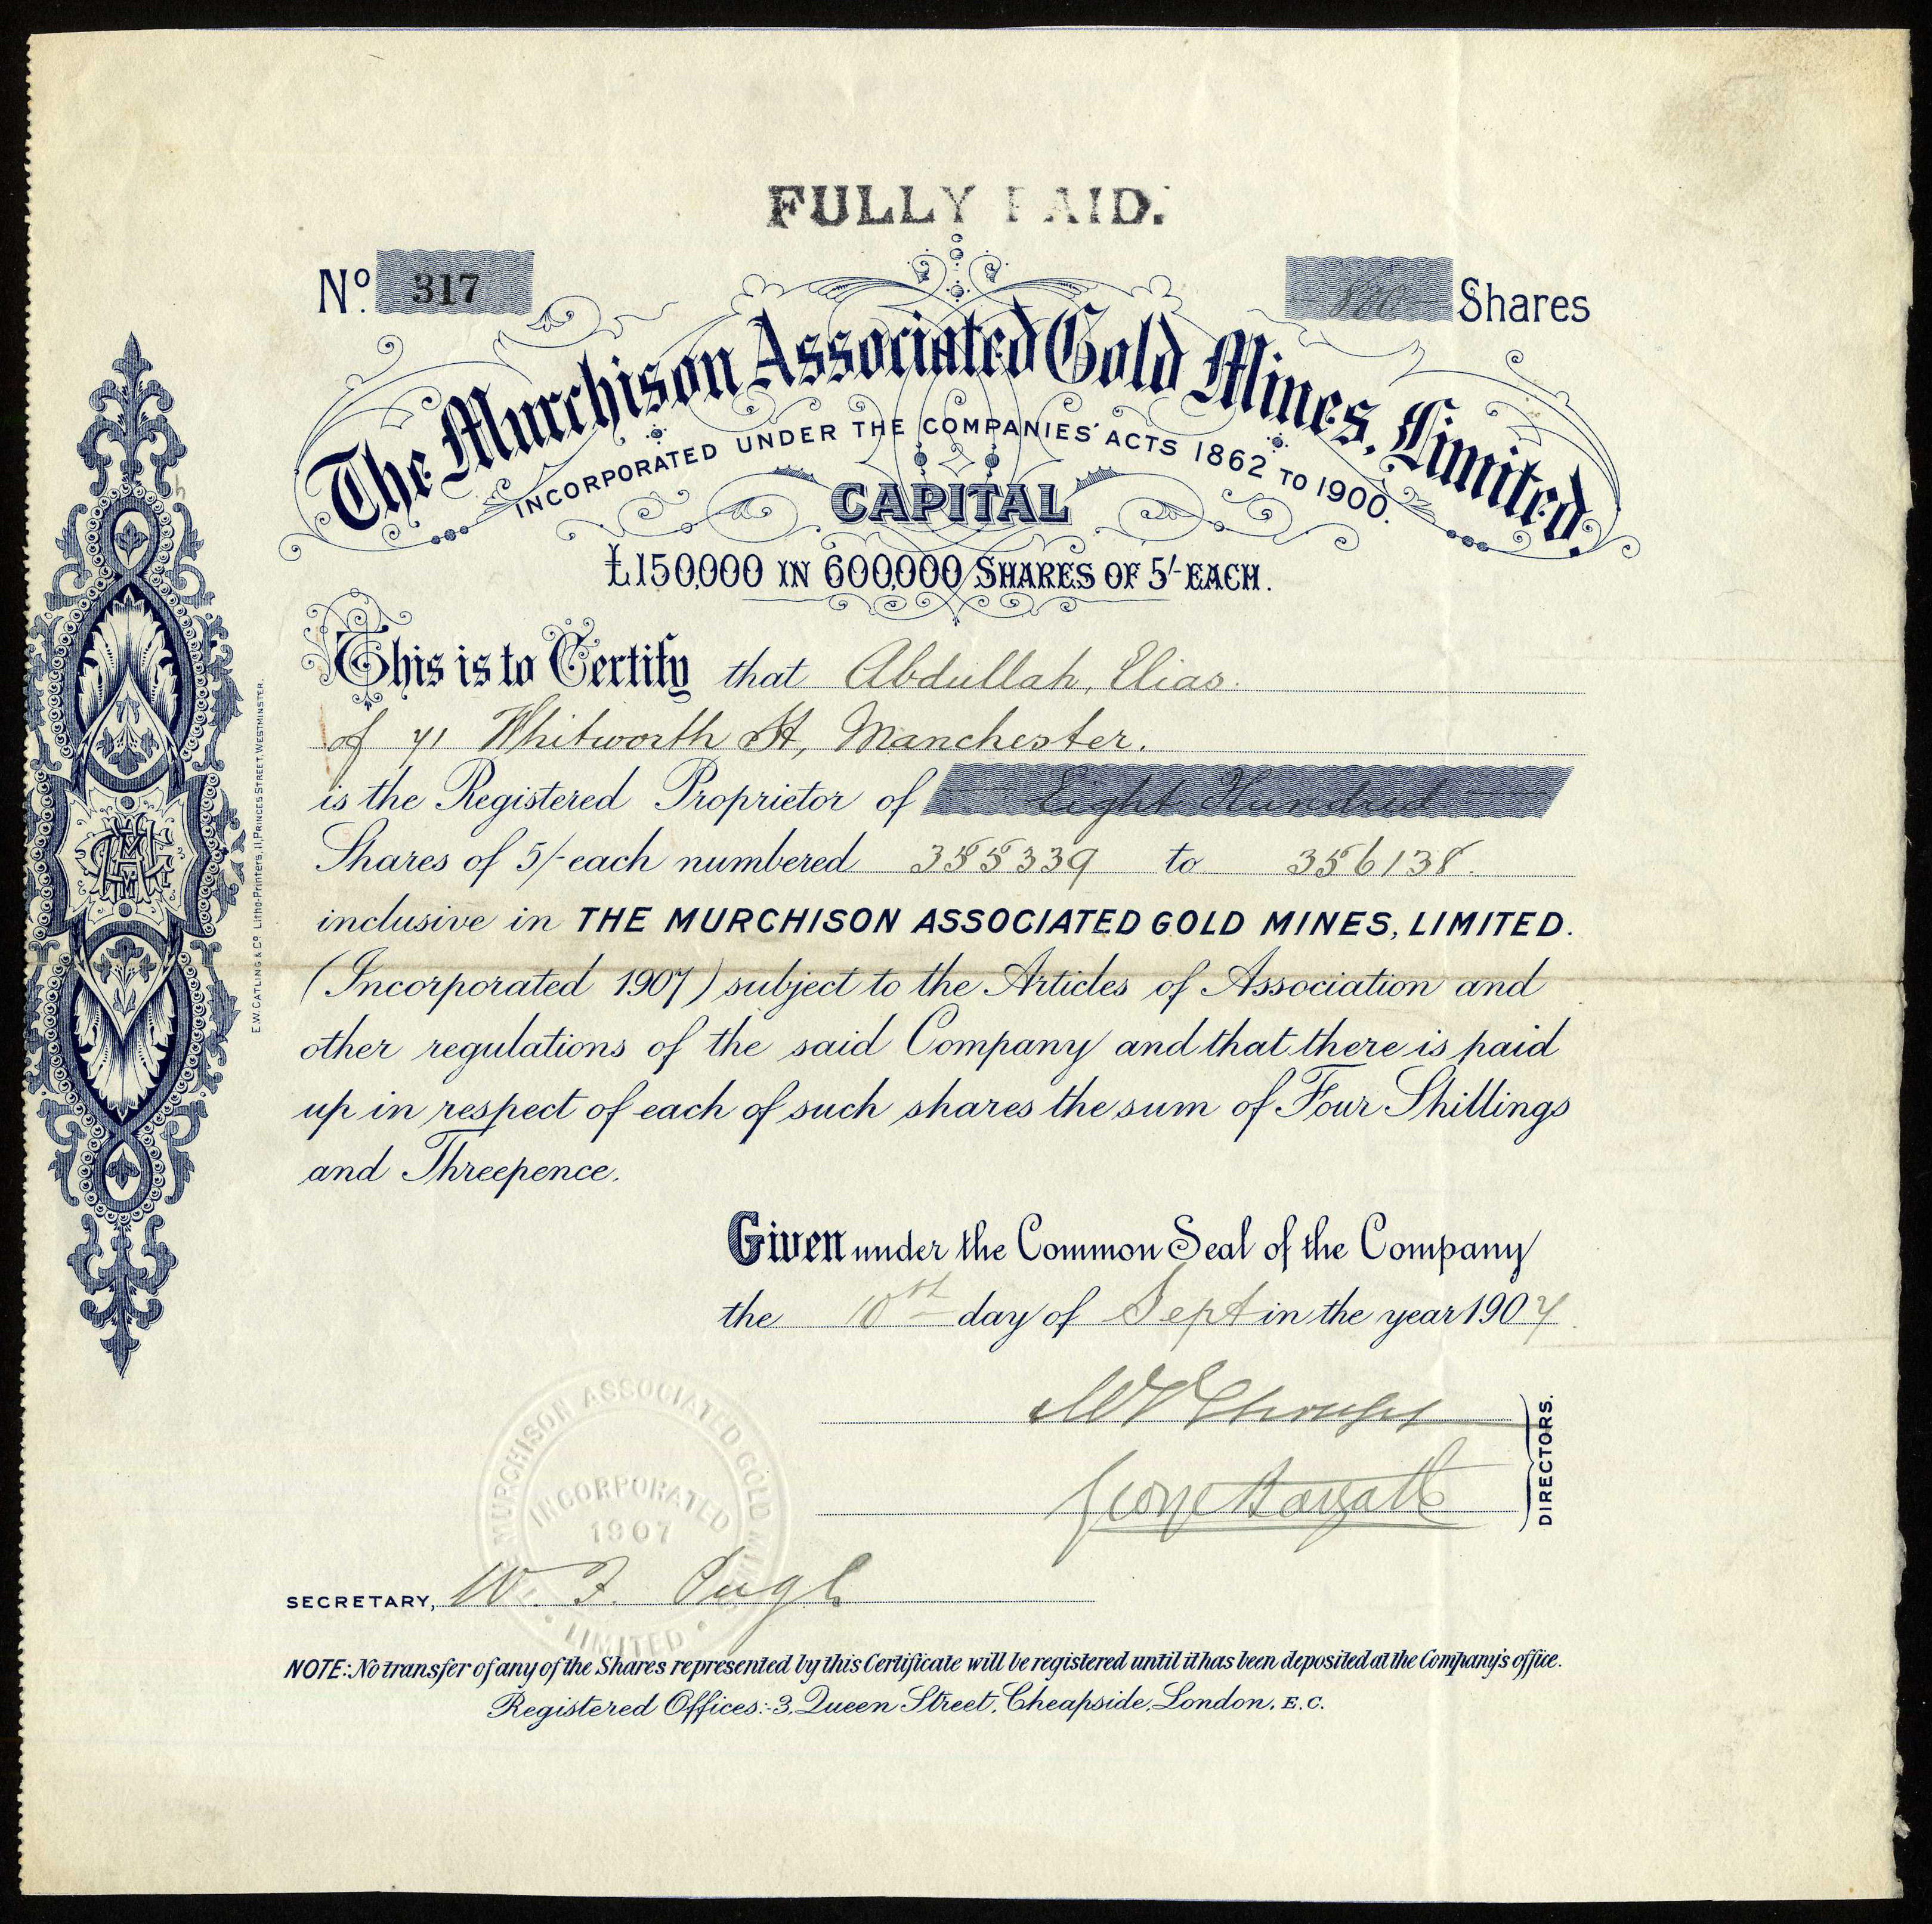 FULLY PAID.
No. 317
800 Shares
The Murchison Associated Gold Mines, Limited.
INCORPORATED UNDER THE COMPANIES' ACTS 1862 TO 1900.
CAPITAL
£150,000 IN 600,000 SHARES OF 5/- EACH.
This is to Certify that Abdullah, Elias.
of 71 Whitworth St, Manchester.
is the Registered Proprietor of Eight Hundred
Shares of 5/- each numbered 355339 to 356138.
inclusive in THE MURCHISON ASSOCIATED GOLD MINES, LIMITED.
(Incorporated 1907) subject to the Articles of Association and
other regulations of the said Company and that there is paid
up in respect of each of such shares the sum of Four Shillings
and Threepence.
Given under the Common Seal of the Company
the 10th day of Sept in the year 1907.
George
DIRECTORS.
MURCHISON ASSOCIATED GOLD MINES LIMITED
INCORPORATED
1907
SECRETARY, W. F. Pugh
NOTE:- No transfer of any of the Shares represented by this Certificate will be registered until it has been deposited at the Company's office.
Registered Offices:- 3, Queen Street, Cheapside, London, E.C.
E.W. CATLING & CO. Litho-Printers, 11, PRINCES STREET, WESTMINSTER.